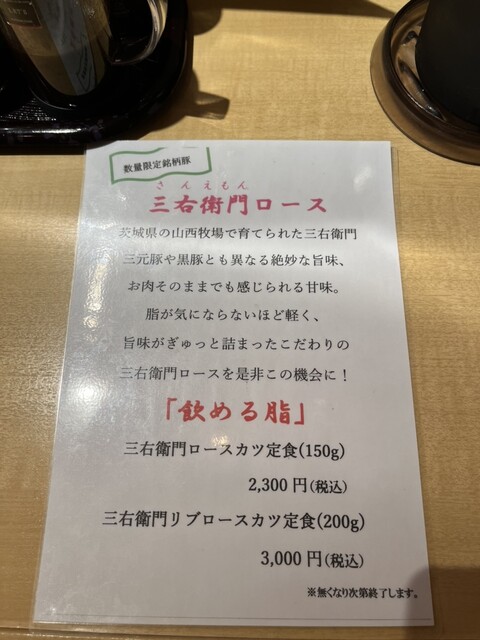 数量限定銘柄豚
さんえもん
三右衛門ロース
茨城県の山西牧場で育てられた三右衛門
三元豚や黒豚とも異なる絶妙な旨味、
お肉そのままでも感じられる甘味。
脂が気にならないほど軽く、
旨味がぎゅっと詰まったこだわりの
三右衛門ロースを是非この機会に！
「飲める脂」
三右衛門ロースカツ定食(150g)
2,300円(税込)
三右衛門リブロースカツ定食(200g)
3,000円(税込)
※無くなり次第終了します。